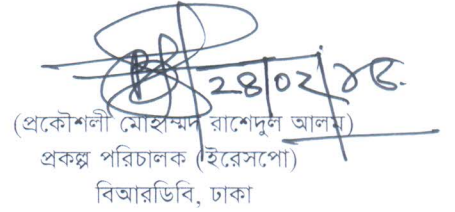 ২৪|০২|
(প্রকৌশলী মোহাম্মদ রাশেদুল আলম)
প্রকল্প পরিচালক (ইরেসপো)
বিআরডিবি, ঢাকা